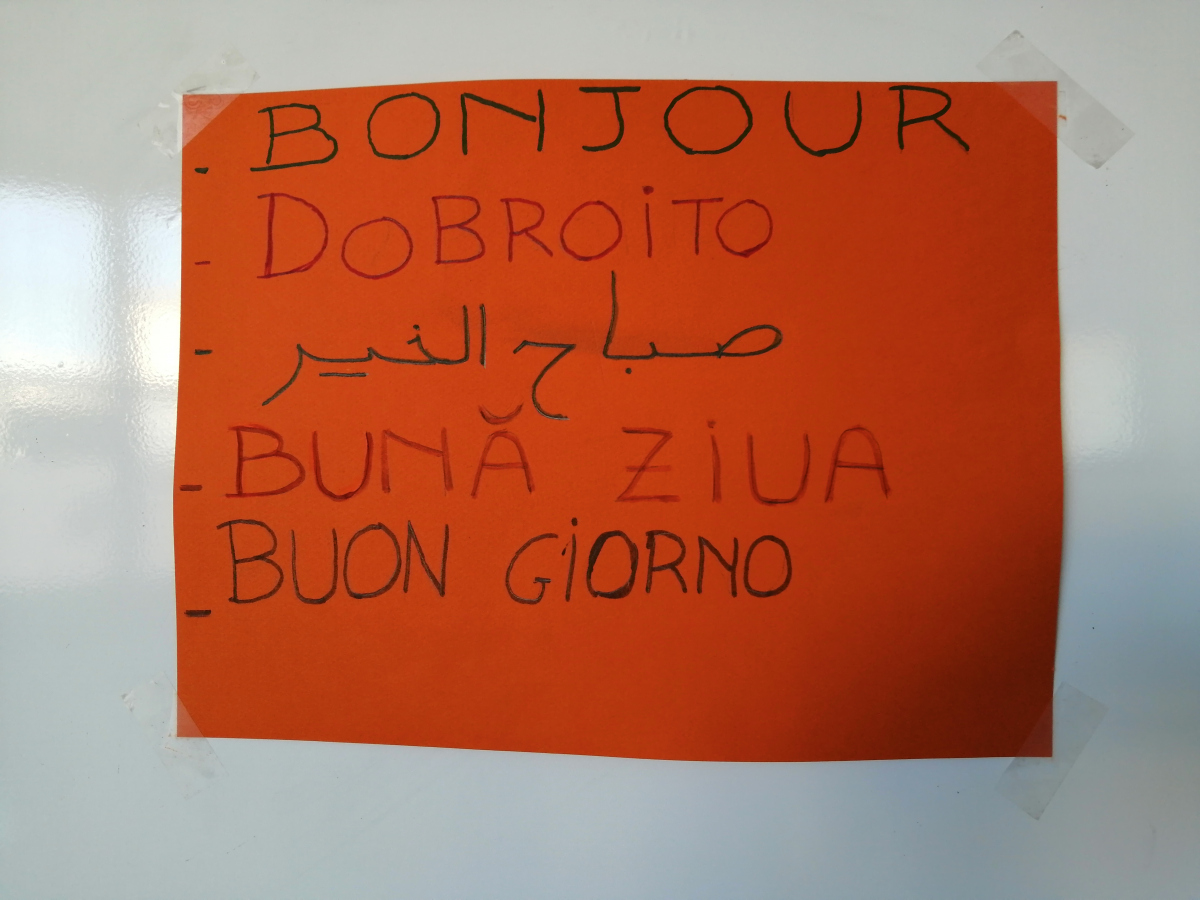 - BONJOUR
- DOBROiTO
- صباح الخير
- BUNĂ ZiUA
- BUON GiORNO